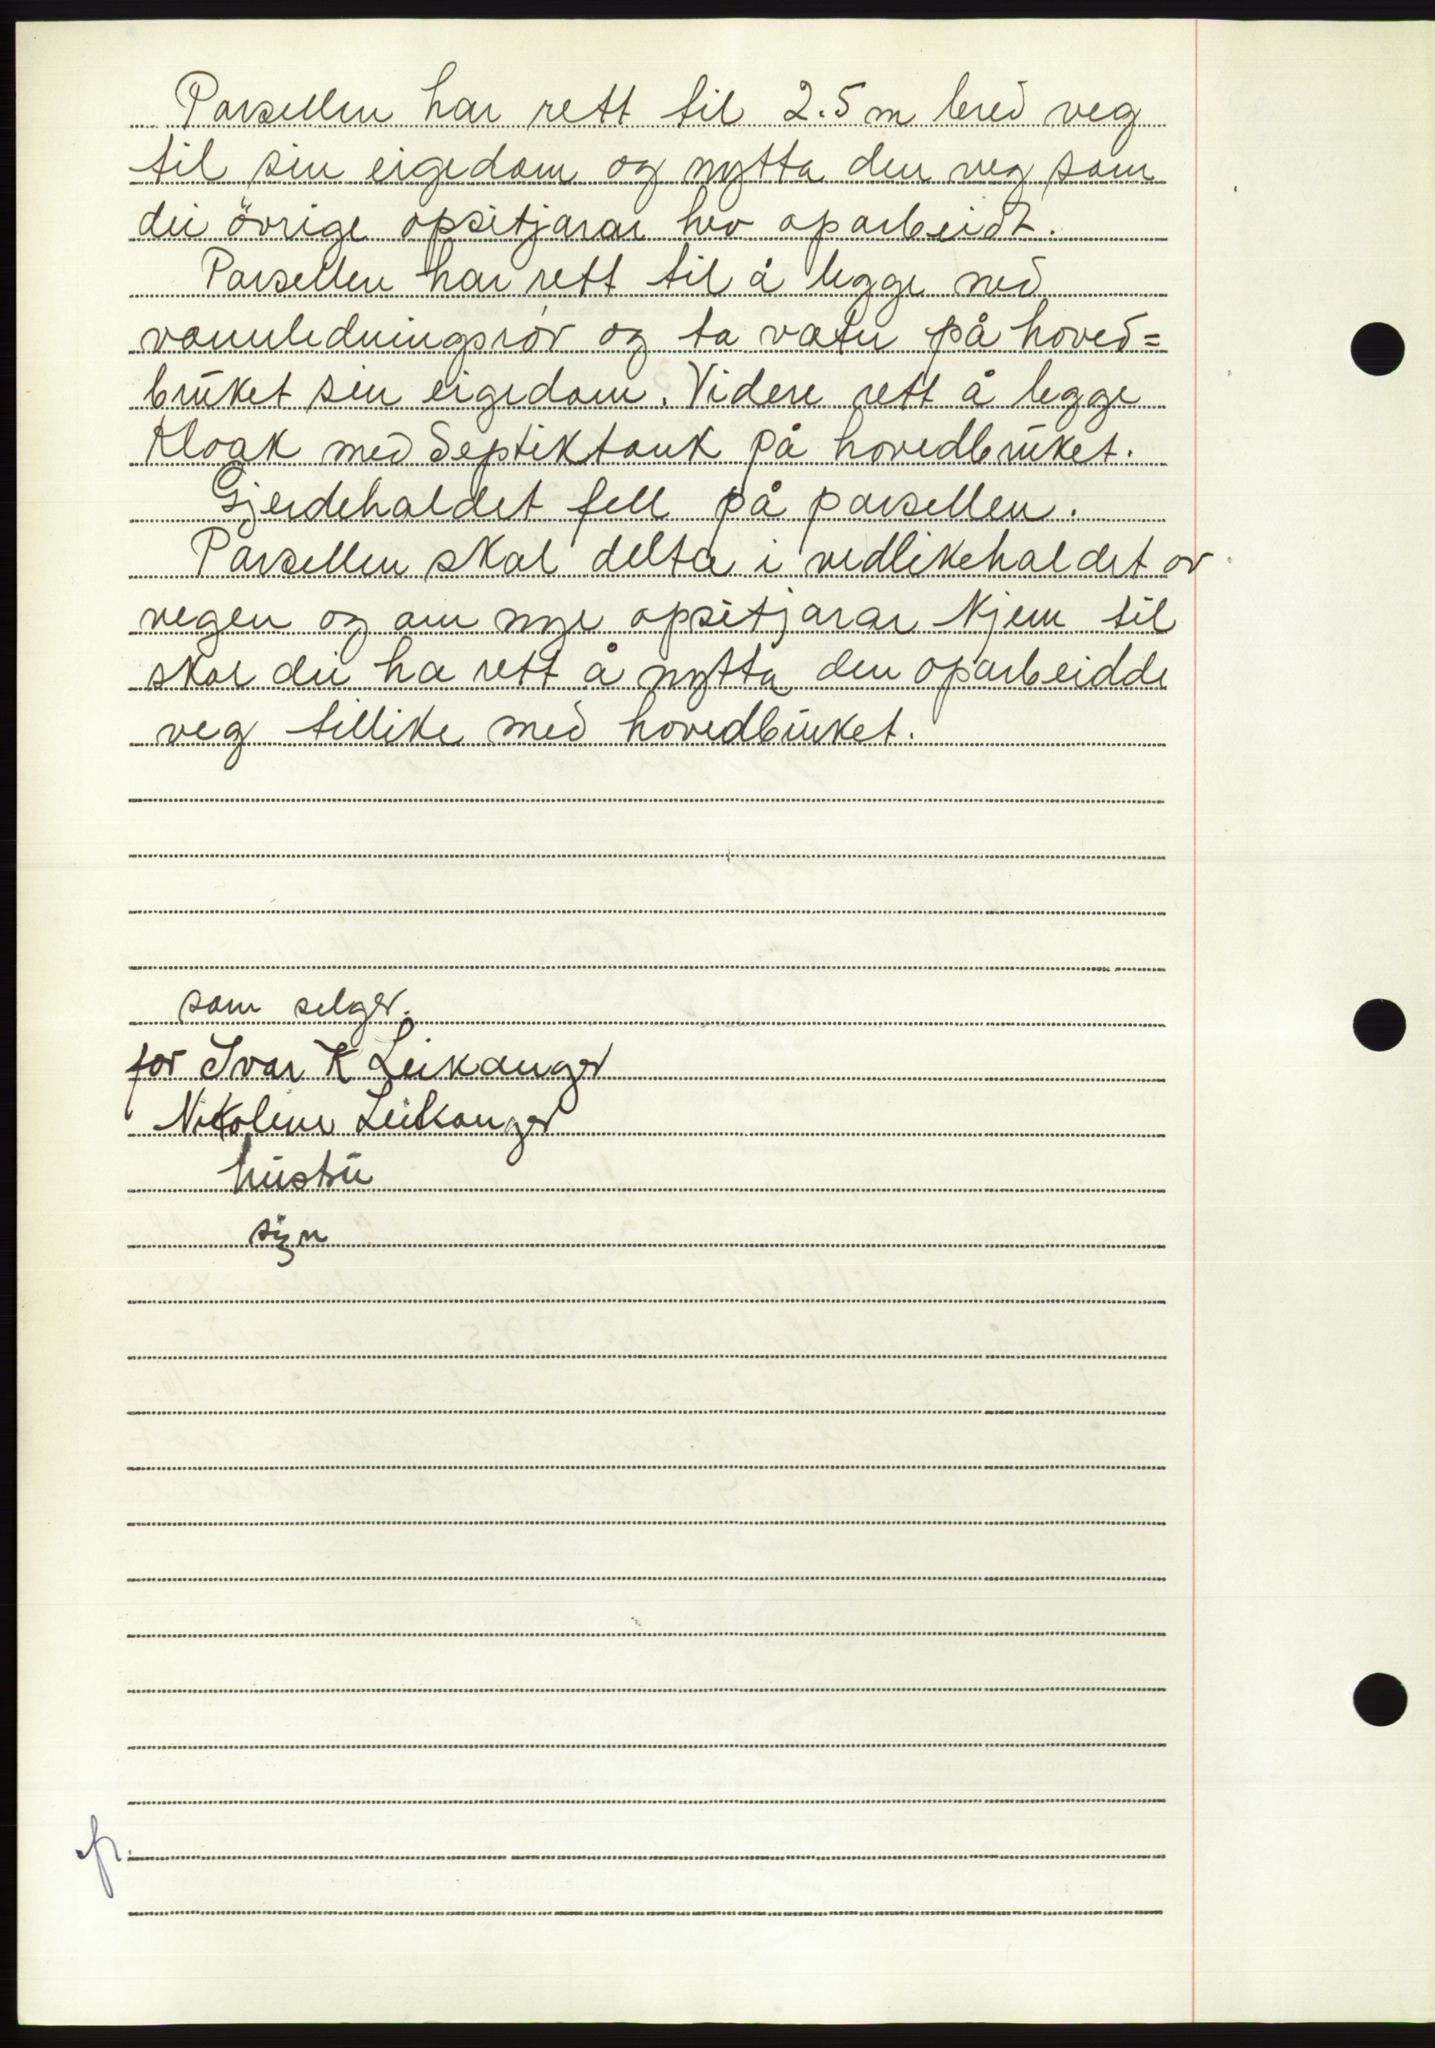 Parsellen har rett til 2.5 m bred veg
til sin eigedom og nytta den veg som
dei övrige opsitjarar hev oparbeidt.
Parsellen har rett til å legge ned
vannledningsrör og ta vatn på hoved=
brŭket sin eigedom. Videre rett å legge
Kloak med Septiktank på hovedbrŭket.
Gjerdehaldet fell på parsellen.
Parsellen skal delta i vedlikehaldet av
vegen og om nye opsitjarar kjem til
skal dei ha rett å nytta den oparbeidde
veg tillike med hovedbrŭket.
som selger.
for Ivar K Leikanger
Nikoline Leikanger
hŭstrŭ
sign